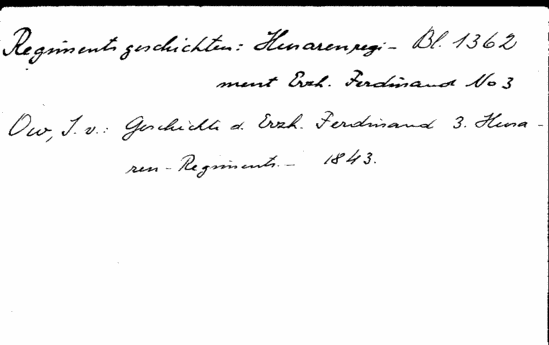 Regimentsgeschichten: Husarenregi- Bl. 1362
ment Erzh. Ferdinand No 3
Ow, J. v.: Geschichte d. Erzh. Ferdinand 3. Husa-
ren-Regiments. - 1843.